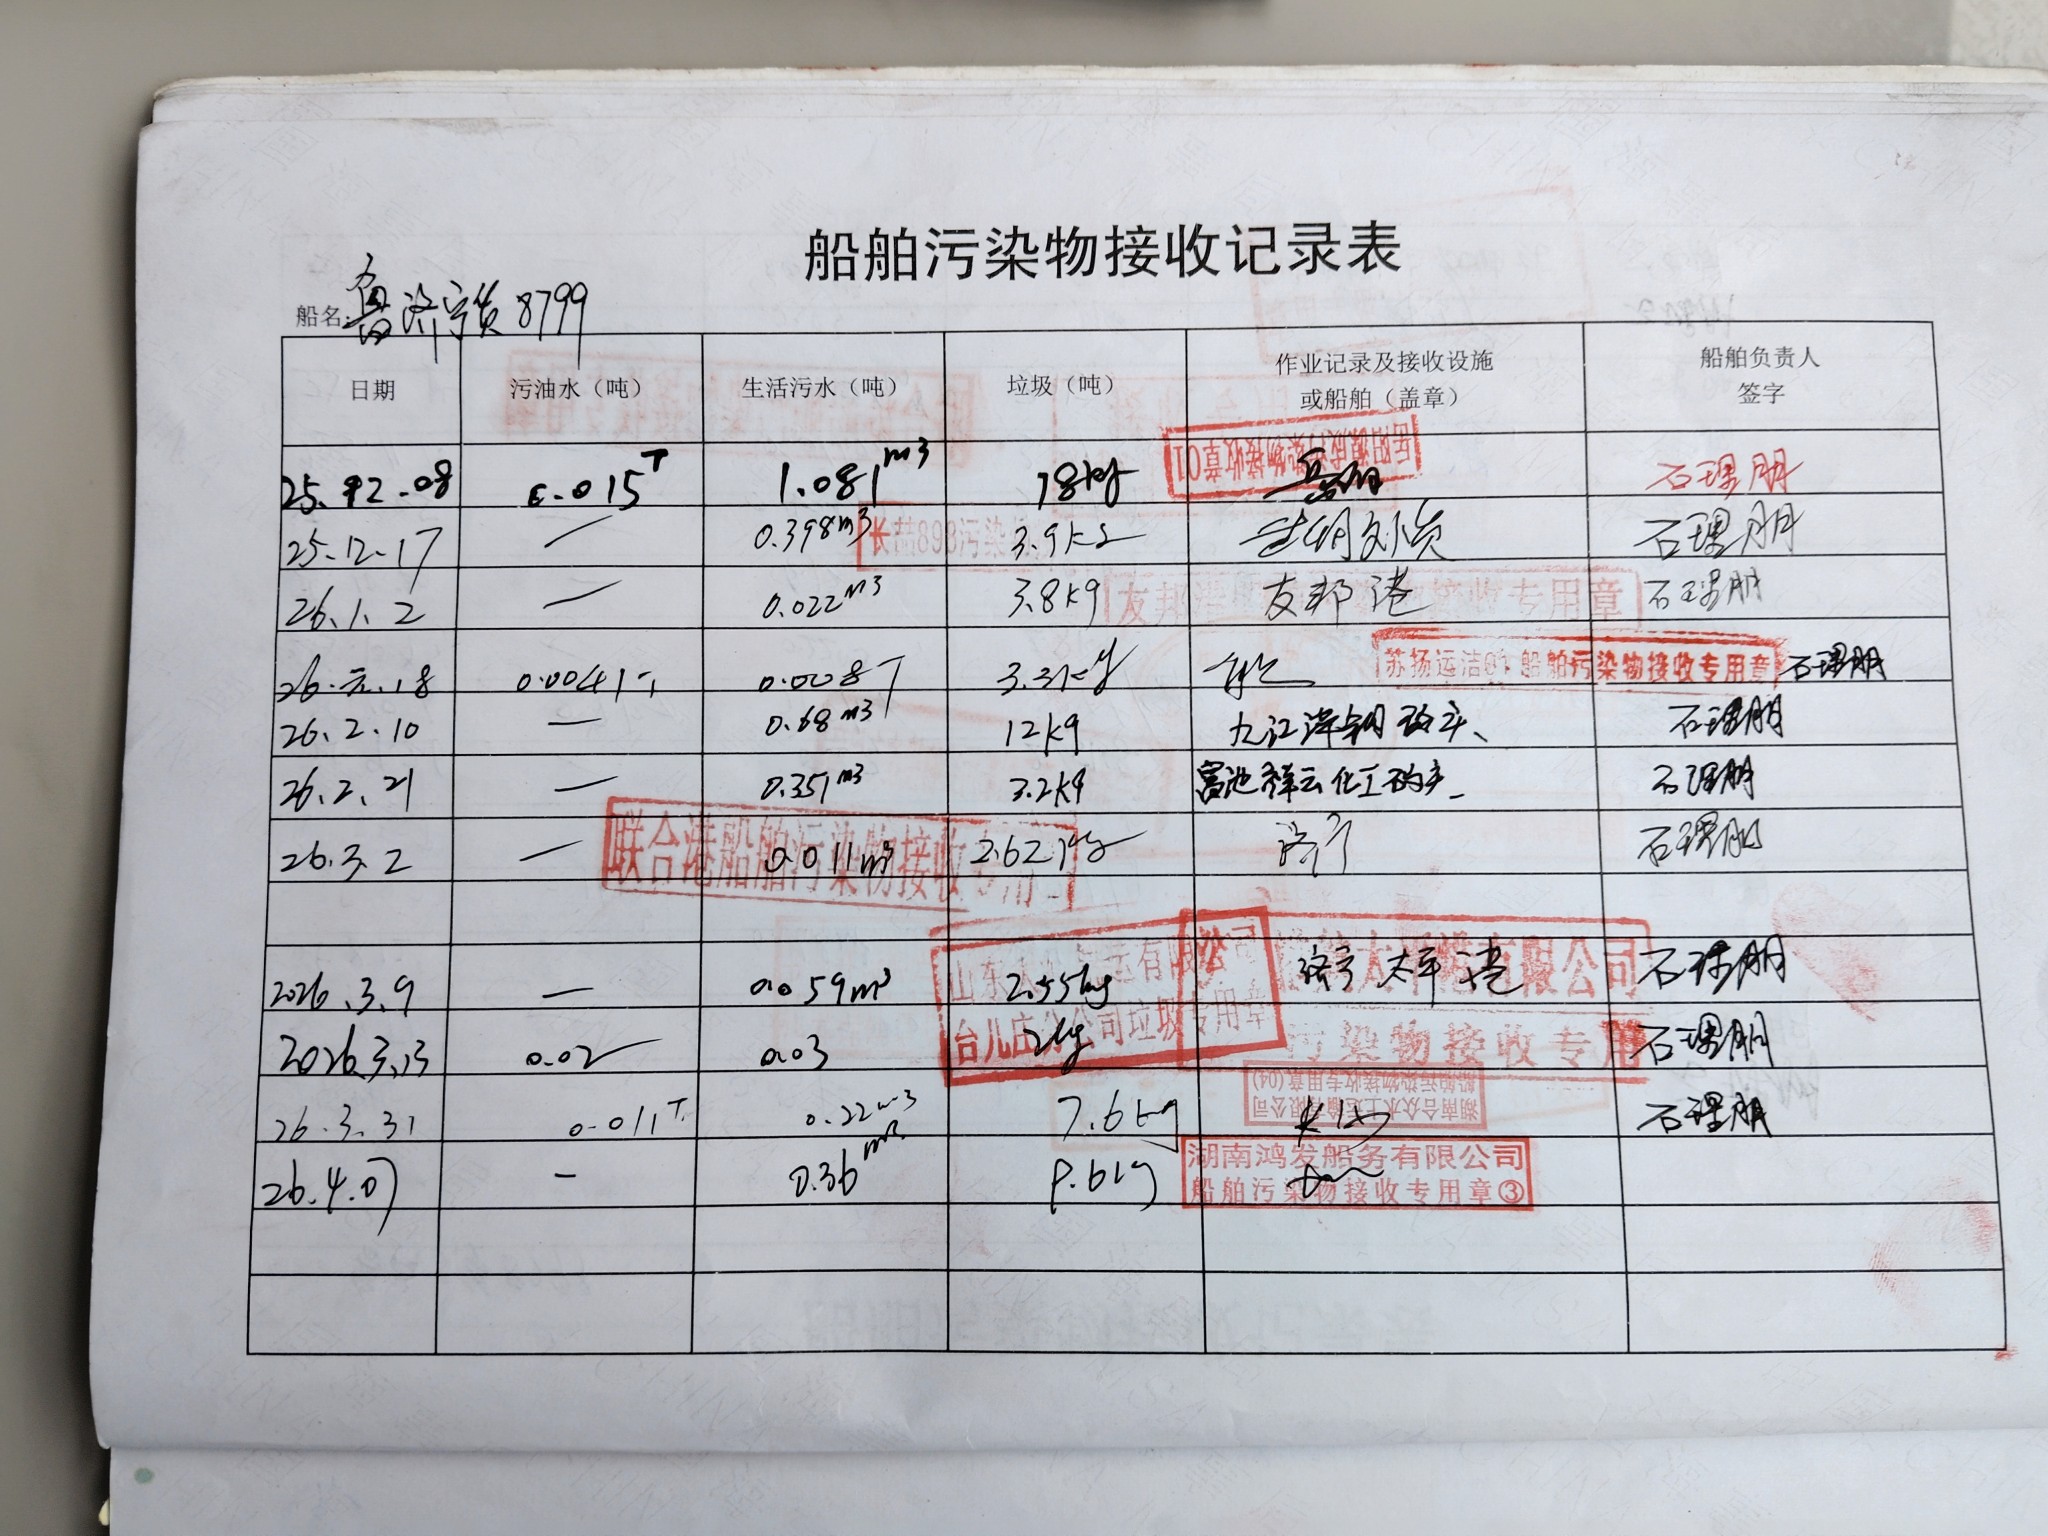 船舶污染物接收记录表
船名:鲁济宁货8799
日期 污油水（吨） 生活污水（吨） 垃圾（吨） 作业记录及接收设施或船舶（盖章） 船舶负责人签字
25.12.08 0.015T 1.081m3 18kg 岳阳 石理朋
25.12.17 — 0.398m3 3.9kg 石理朋
26.1.2 — 0.022m3 3.8kg 友邦港 石理朋
26.元.18 0.0041T 0.008T 3.3kg 石理朋
苏扬运洁01 船舶污染物接收专用章
26.2.10 — 0.68m3 12kg 九江 石理朋
26.2.21 — 0.351m3 3.2kg 富池祥云化工码头 石理朋
26.3.2 — 0.011m3 2.62kg 济宁 石理朋
联合港船舶污染物接收专用
2026.3.9 — 0.059m3 2.55kg 济宁太平港 石理朋
台儿庄分公司垃圾专用章
污染物接收专用
2026.3.13 0.02 0.03 2kg 石理朋
湖南合众水上运输有限公司
船舶污染物接收专用章(04)
26.3.31 0.011T 0.22m3 7.6kg 长沙 石理朋
湖南鸿发船务有限公司
船舶污染物接收专用章③
26.4.07 — 0.36m3